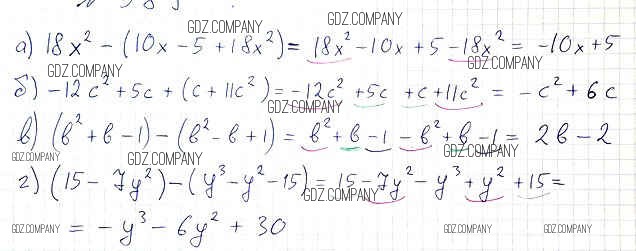 GDZ.COMPANY GDZ.COMPANY
а) 18x² - (10x - 5 + 18x²) = 18x² - 10x + 5 - 18x² = -10x + 5
GDZ.COMPANY GDZ.COMPANY
б) -12c² + 5c + (c + 11c²) = -12c² + 5c + c + 11c² = -c² + 6c
GDZ.COMPANY
в) (b² + b - 1) - (b² - b + 1) = b² + b - 1 - b² + b - 1 = 2b - 2
GDZ.COMPANY GDZ.COMPANY GDZ.COMPANY
г) (15 - 7y²) - (y³ - y² - 15) = 15 - 7y² - y³ + y² + 15 =
GDZ.COMPANY
= -y³ - 6y² + 30
GDZ.COMPANY GDZ.COMPANY GDZ.COMPANY